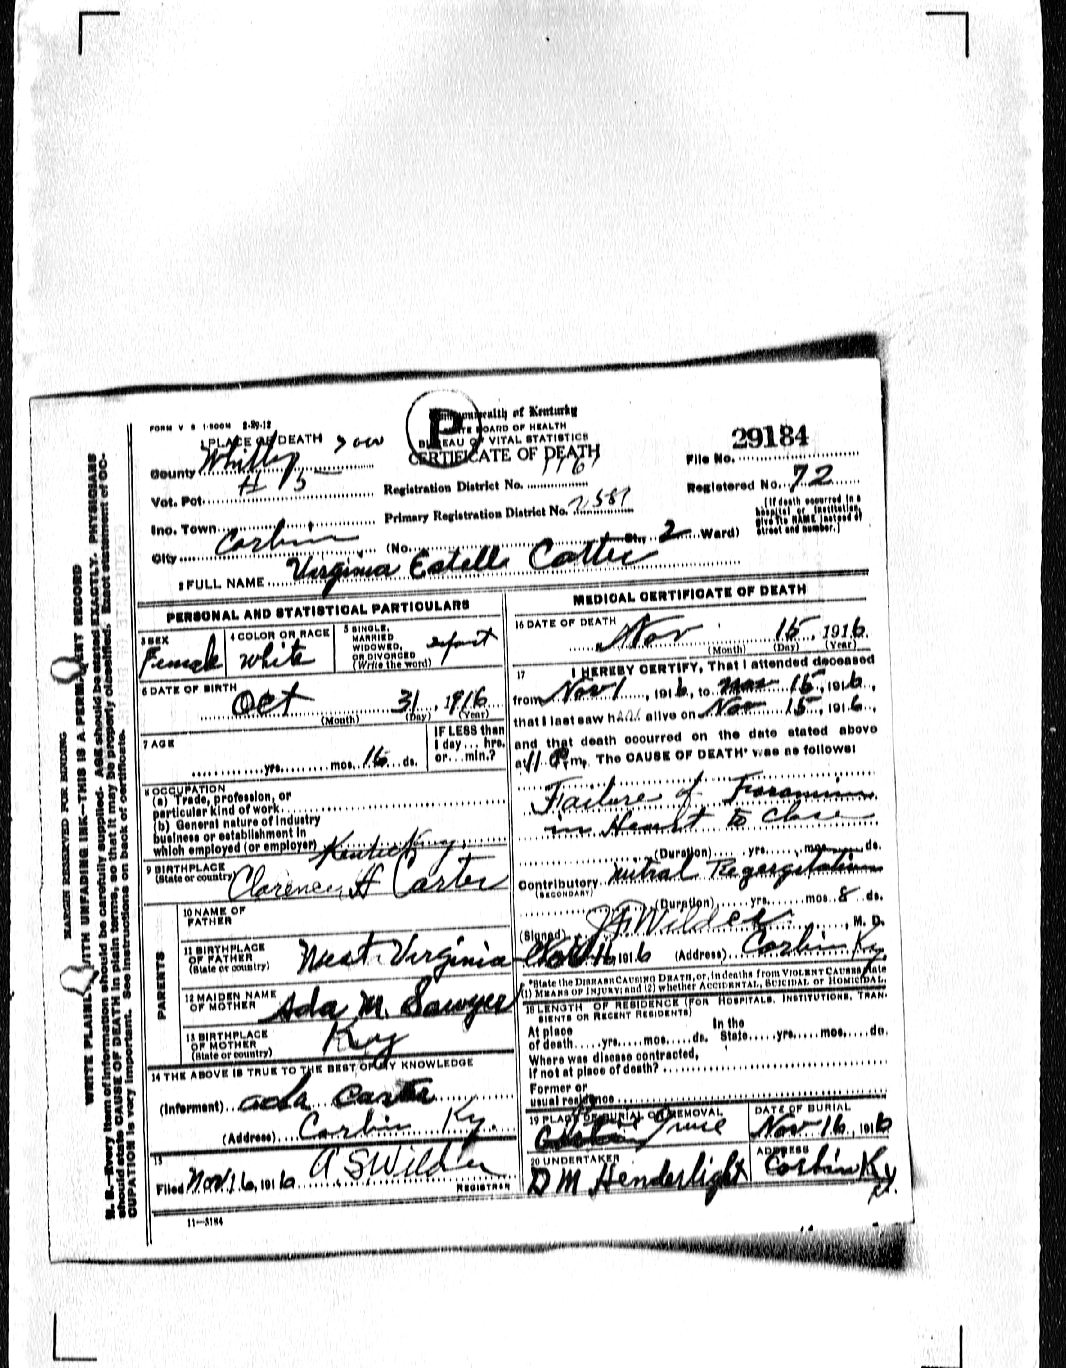 FORM V S 1-500M 8-29-12
Commonwealth of Kentucky
STATE BOARD OF HEALTH
BUREAU OF VITAL STATISTICS
CERTIFICATE OF DEATH
P
1 PLACE OF DEATH
County Whitley
Vot. Pct. # 5
Registration District No.
Inc. Town
Primary Registration District No.
City Corbin (No. St., 2 Ward)
File No. 29184
Registered No. 72
[If death occurred in a hospital or institution, give its NAME instead of street and number.]
2 FULL NAME Virginia Estelle Carter
PERSONAL AND STATISTICAL PARTICULARS
3 SEX Female
4 COLOR OR RACE White
5 SINGLE, MARRIED WIDOWED, OR DIVORCED (Write the word)
6 DATE OF BIRTH
Oct 31, 1916
(Month) (Day) (Year)
7 AGE
yrs. mos. 16 ds.
IF LESS than 1 day... hrs. or...min.?
8 OCCUPATION
(a) Trade, profession, or
particular kind of work
(b) General nature of industry
business or establishment in
which employed (or employer)
9 BIRTHPLACE
(State or country) Kentucky
PARENTS
10 NAME OF FATHER Clarence H Carter
11 BIRTHPLACE OF FATHER (State or country) West Virginia
12 MAIDEN NAME OF MOTHER Ada M. Sawyer
13 BIRTHPLACE OF MOTHER (State or country) Ky
14 THE ABOVE IS TRUE TO THE BEST OF MY KNOWLEDGE
(Informant) Ada Carter
(Address) Corbin Ky.
15
Filed Nov 16, 1916 A S Wilder
REGISTRAR
11-3184
MEDICAL CERTIFICATE OF DEATH
16 DATE OF DEATH
Nov 15, 1916
(Month) (Day) (Year)
17 I HEREBY CERTIFY, That I attended deceased
from Nov 1, 1916, to Nov 15, 1916,
that I last saw her alive on Nov 15, 1916,
and that death occurred on the date stated above
at 11 P.m. The CAUSE OF DEATH* was as follows:
Failure of Foramin
in Heart to Close
(Duration) yrs. mos. ds.
Contributory Mitral Regergitation
(SECONDARY)
(Duration) yrs. mos. 8 ds.
(Signed) Wilder, M. D.
Nov 16 1916 (Address) Corbin Ky.
*State the DISEASE CAUSING DEATH, or, in deaths from VIOLENT CAUSES, state
(1) MEANS OF INJURY; and (2) whether ACCIDENTAL, SUICIDAL or HOMICIDAL.
18 LENGTH OF RESIDENCE (FOR HOSPITALS, INSTITUTIONS, TRANSIENTS OR RECENT RESIDENTS)
At place of death yrs. mos. ds. In the State yrs. mos. ds.
Where was disease contracted,
If not at place of death?
Former or
usual residence
19 PLACE OF BURIAL OR REMOVAL
DATE OF BURIAL
Nov 16, 1916
20 UNDERTAKER
D M Henderlight
ADDRESS
Corbin Ky
MARGIN RESERVED FOR BINDING
WRITE PLAINLY WITH UNFADING INK—THIS IS A PERMANENT RECORD
N. B.—Every item of information should be carefully supplied. AGE should be stated EXACTLY. PHYSICIANS
should state CAUSE OF DEATH in plain terms, so that it may be properly classified. Exact statement of OC-
CUPATION is very important. See instructions on back of certificate.